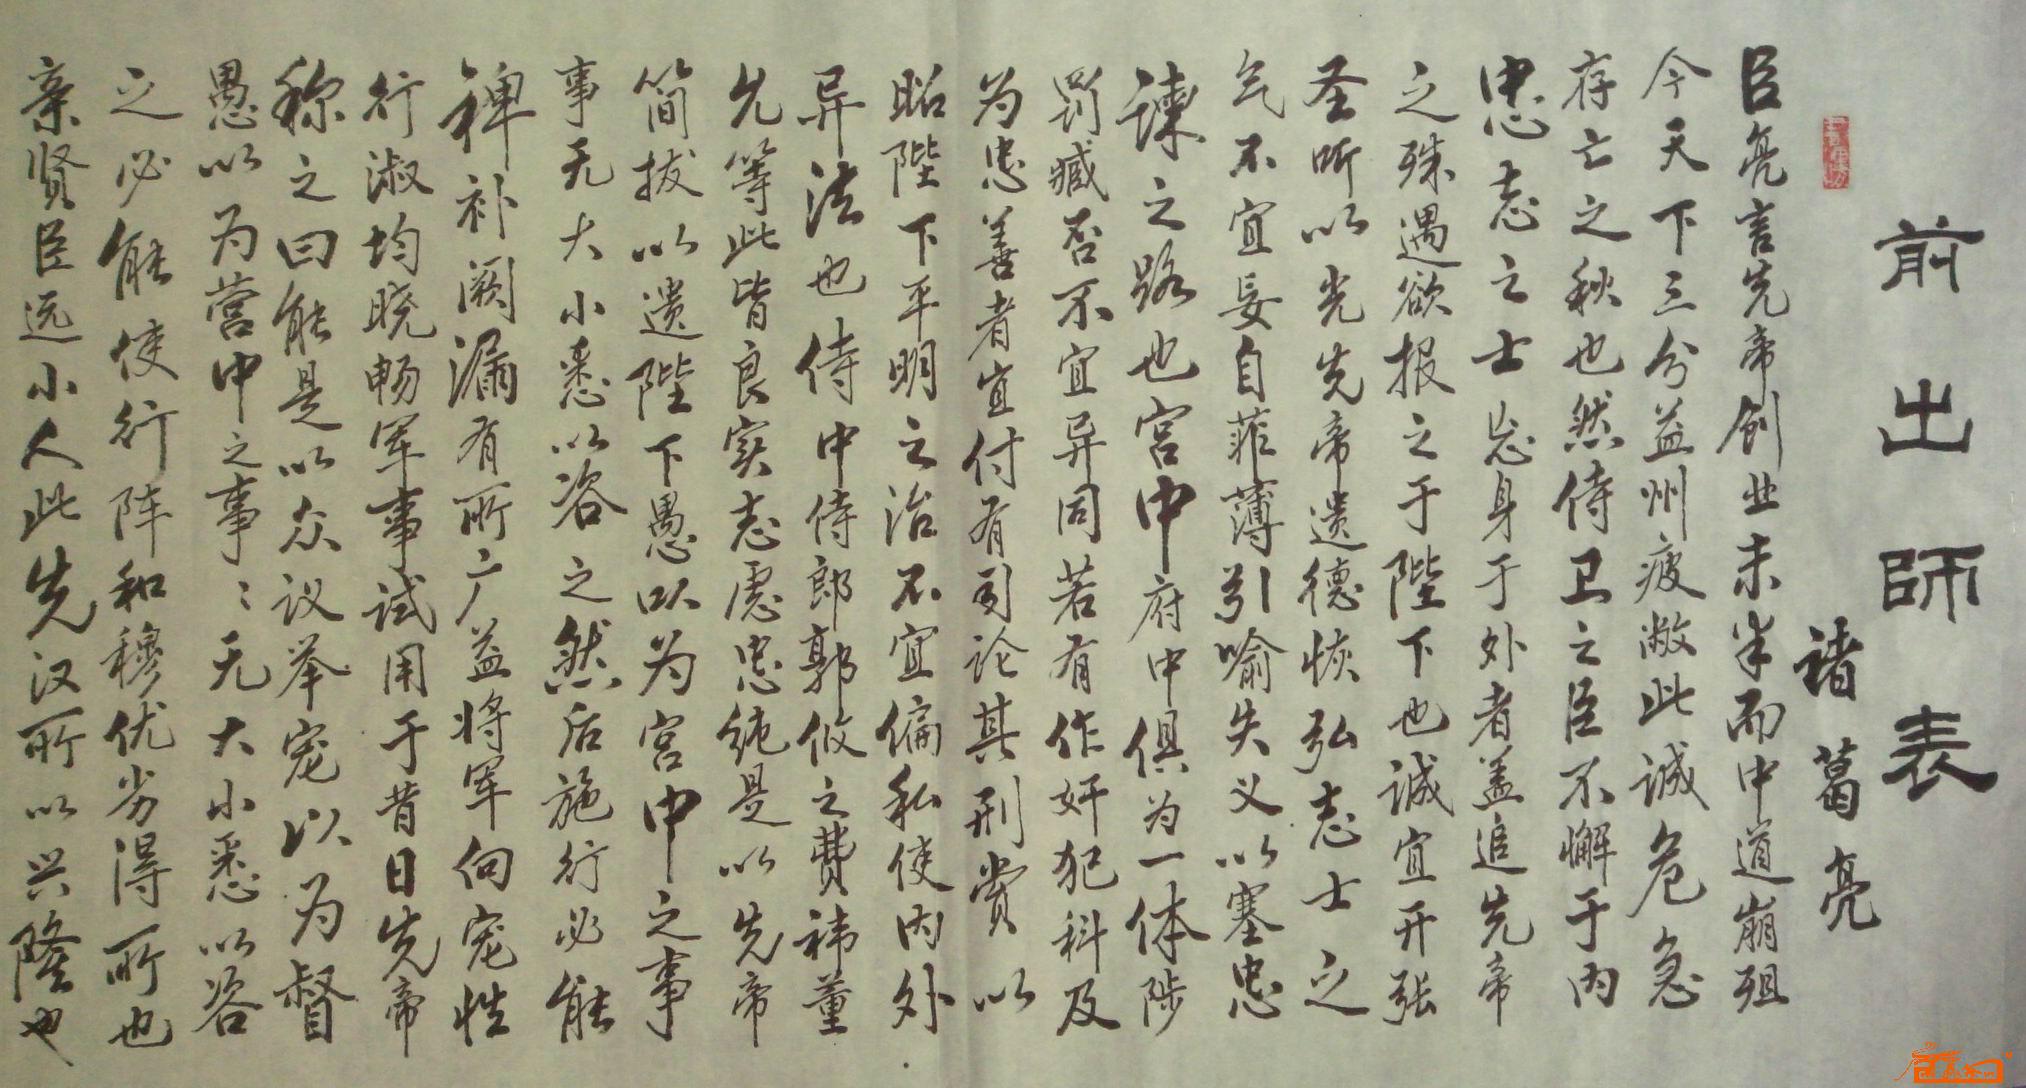 前出师表
诸葛亮
臣亮言先帝创业未半而中道崩殂
今天下三分益州疲敝此诚危急
存亡之秋也然侍卫之臣不懈于内
忠志之士忘身于外者盖追先帝
之殊遇欲报之于陛下也诚宜开张
圣听以光先帝遗德恢弘志士之
气不宜妄自菲薄引喻失义以塞忠
谏之路也宫中府中俱为一体陟
罚臧否不宜异同若有作奸犯科及
为忠善者宜付有司论其刑赏以
昭陛下平明之治不宜偏私使内外
异法也侍中侍郎郭攸之费祎董
允等此皆良实志虑忠纯是以先帝
简拔以遗陛下愚以为宫中之事
事无大小悉以咨之然后施行必能
裨补阙漏有所广益将军向宠性
行淑均晓畅军事试用于昔日先帝
称之曰能是以众议举宠以为督
愚以为营中之事〻无大小悉以咨
之必能使行阵和穆优劣得所也
亲贤臣远小人此先汉所以兴隆也